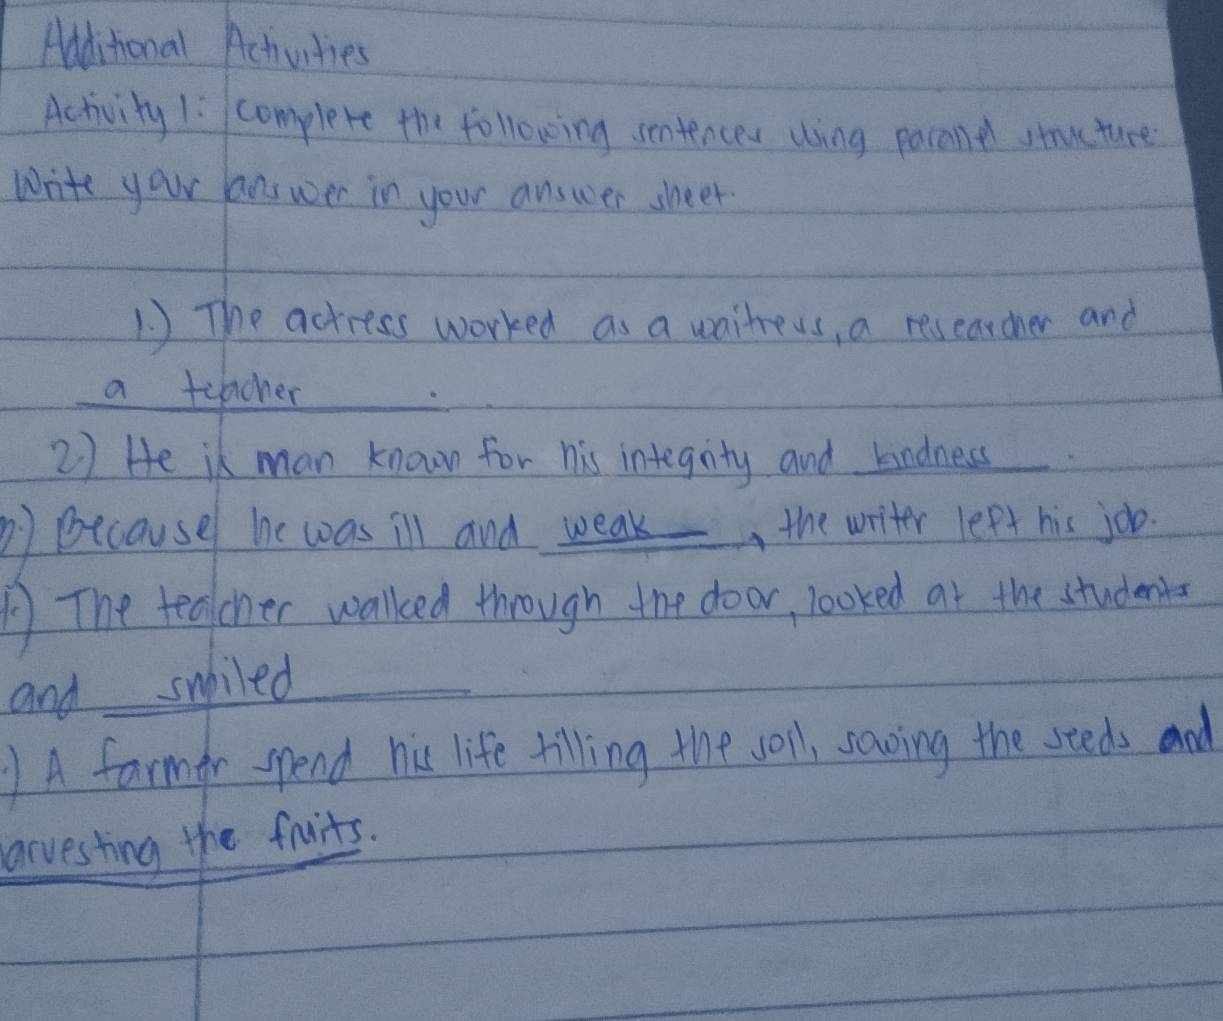 Additional Activities
Activity 1: Complete the following sentences using parallel structure.
Write your answer in your answer sheet.
1.) The actress worked as a waitress, a researcher and
a teacher.
2.) He is man known for his integrity and kindness.
3.) Because he was ill and weak, the writer left his job.
4.) The teacher walked through the door, looked at the students
and smiled
.) A farmer spend his life tilling the soil, sowing the seeds and
harvesting the fruits.